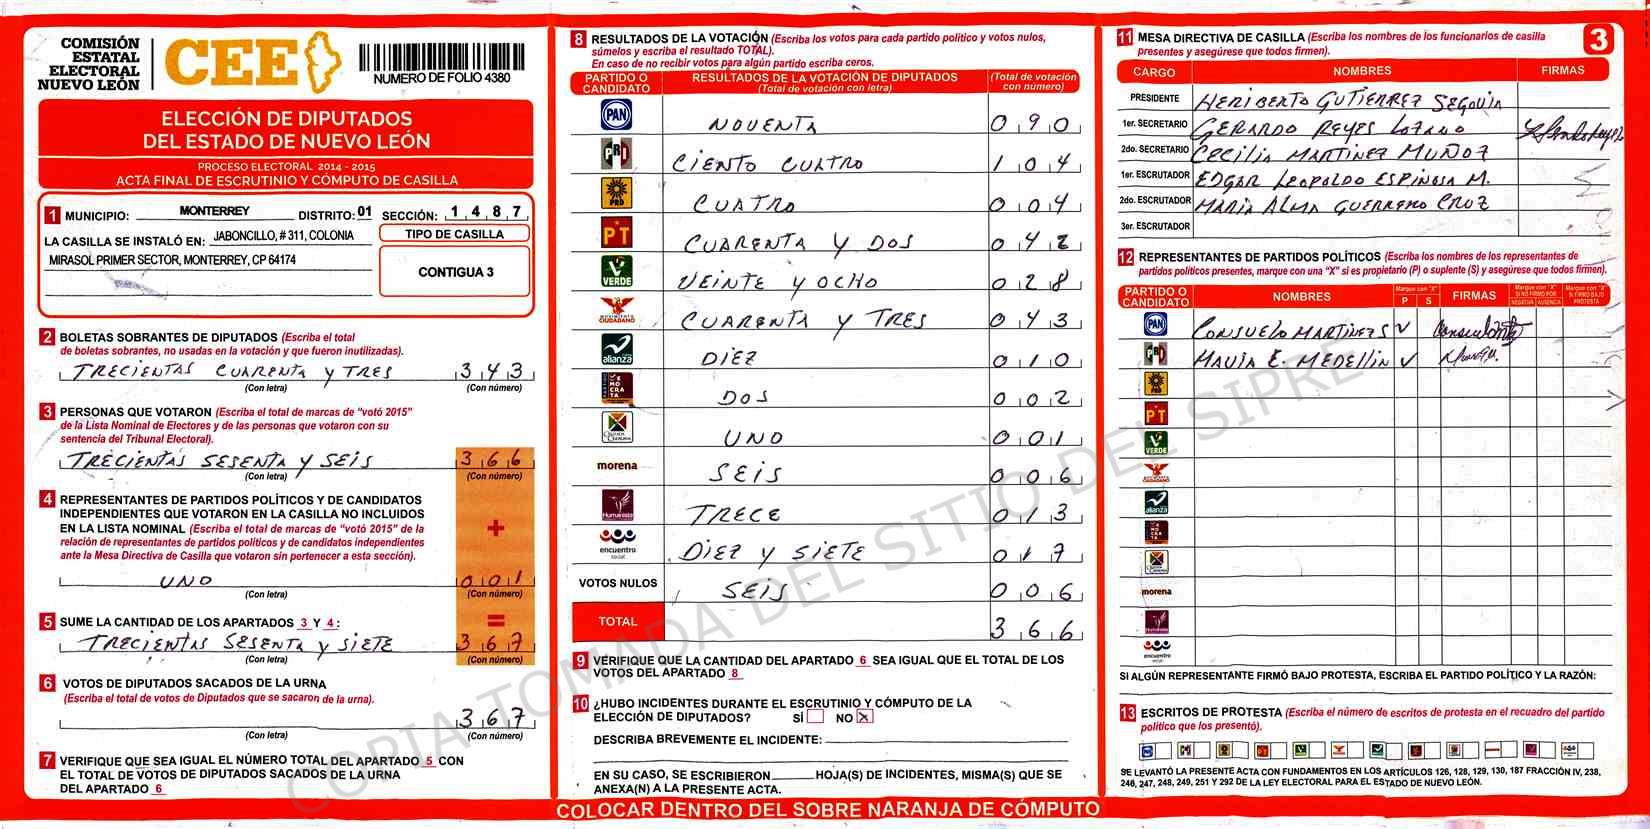 COMISIÓN
ESTATAL
ELECTORAL
NUEVO LEÓN
CEE
NUMERO DE FOLIO 4380
ELECCIÓN DE DIPUTADOS
DEL ESTADO DE NUEVO LEÓN
PROCESO ELECTORAL 2014 - 2015
ACTA FINAL DE ESCRUTINIO Y CÓMPUTO DE CASILLA
1 MUNICIPIO: MONTERREY DISTRITO: 01 SECCIÓN: 1 4 8 7
LA CASILLA SE INSTALÓ EN: JABONCILLO, # 311, COLONIA
MIRASOL PRIMER SECTOR, MONTERREY, CP 64174
TIPO DE CASILLA
CONTIGUA 3
2 BOLETAS SOBRANTES DE DIPUTADOS (Escriba el total
de boletas sobrantes, no usadas en la votación y que fueron inutilizadas).
TRECIENTAS CUARENTA Y TRES 3 4 3
(Con letra) (Con número)
3 PERSONAS QUE VOTARON (Escriba el total de marcas de "votó 2015"
de la Lista Nominal de Electores y de las personas que votaron con su
sentencia del Tribunal Electoral).
TRECIENTAS SESENTA Y SEIS 3 6 6
(Con letra) (Con número)
4 REPRESENTANTES DE PARTIDOS POLÍTICOS Y DE CANDIDATOS
INDEPENDIENTES QUE VOTARON EN LA CASILLA NO INCLUIDOS
EN LA LISTA NOMINAL (Escriba el total de marcas de "votó 2015" de la
relación de representantes de partidos políticos y de candidatos independientes
ante la Mesa Directiva de Casilla que votaron sin pertenecer a esta sección).
+
UNO 0 0 1
(Con letra) (Con número)
5 SUME LA CANTIDAD DE LOS APARTADOS 3 Y 4: =
TRECIENTAS SESENTA Y SIETE 3 6 7
(Con letra) (Con número)
6 VOTOS DE DIPUTADOS SACADOS DE LA URNA
(Escriba el total de votos de Diputados que se sacaron de la urna).
3 6 7
(Con letra) (Con número)
7 VERIFIQUE QUE SEA IGUAL EL NÚMERO TOTAL DEL APARTADO 5 CON
EL TOTAL DE VOTOS DE DIPUTADOS SACADOS DE LA URNA
DEL APARTADO 6
8 RESULTADOS DE LA VOTACIÓN (Escriba los votos para cada partido político y votos nulos,
súmelos y escriba el resultado TOTAL).
En caso de no recibir votos para algún partido escriba ceros.
PARTIDO O CANDIDATO RESULTADOS DE LA VOTACIÓN DE DIPUTADOS (Total de votación con letra) (Total de votación con número)
PAN NOVENTA 0 9 0
PRI CIENTO CUATRO 1 0 4
PRD CUATRO 0 0 4
PT CUARENTA Y DOS 0 4 2
VERDE VEINTE Y OCHO 0 2 8
MOVIMIENTO CIUDADANO CUARENTA Y TRES 0 4 3
alianza DIEZ 0 1 0
DEMOCRATA DOS 0 0 2
UNO 0 0 1
morena SEIS 0 0 6
Humanista TRECE 0 1 3
encuentro social DIEZ Y SIETE 0 1 7
VOTOS NULOS SEIS 0 0 6
TOTAL 3 6 6
9 VERIFIQUE QUE LA CANTIDAD DEL APARTADO 6 SEA IGUAL QUE EL TOTAL DE LOS
VOTOS DEL APARTADO 8
10 ¿HUBO INCIDENTES DURANTE EL ESCRUTINIO Y CÓMPUTO DE LA
ELECCIÓN DE DIPUTADOS? SÍ NO X
DESCRIBA BREVEMENTE EL INCIDENTE:
EN SU CASO, SE ESCRIBIERON HOJA(S) DE INCIDENTES, MISMA(S) QUE SE
ANEXA(N) A LA PRESENTE ACTA.
11 MESA DIRECTIVA DE CASILLA (Escriba los nombres de los funcionarios de casilla
presentes y asegúrese que todos firmen).
3
CARGO NOMBRES FIRMAS
PRESIDENTE HERIBERTO GUTIERREZ SEGOVIA
1er. SECRETARIO GERARDO REYES LOZANO
2do. SECRETARIO CECILIA MARTINEZ MUÑOZ
1er. ESCRUTADOR EDGAR LEOPOLDO ESPINOSA M.
2do. ESCRUTADOR MARIA ALMA GUERRERO CRUZ
3er. ESCRUTADOR
12 REPRESENTANTES DE PARTIDOS POLÍTICOS (Escriba los nombres de los representantes de
partidos políticos presentes, marque con una "X" si es propietario (P) o suplente (S) y asegúrese que todos firmen).
PARTIDO O CANDIDATO NOMBRES Marque con "X" P S FIRMAS Marque con "X" SI NO FIRMÓ POR NEGATIVA AUSENCIA Marque con "X" SI FIRMÓ BAJO PROTESTA
PAN CONSUELO MARTINEZ S
PRI MAVIA E. MEDELLIN
PRD
PT
VERDE
CIUDADANO
alianza
morena
Humanista
encuentro social
SI ALGÚN REPRESENTANTE FIRMÓ BAJO PROTESTA, ESCRIBA EL PARTIDO POLÍTICO Y LA RAZÓN:
13 ESCRITOS DE PROTESTA (Escriba el número de escritos de protesta en el recuadro del partido
político que los presentó).
SE LEVANTÓ LA PRESENTE ACTA CON FUNDAMENTOS EN LOS ARTÍCULOS 126, 128, 129, 130, 187 FRACCIÓN IV, 238,
246, 247, 248, 249, 251 Y 292 DE LA LEY ELECTORAL PARA EL ESTADO DE NUEVO LEÓN.
COLOCAR DENTRO DEL SOBRE NARANJA DE CÓMPUTO
COPIA TOMADA DEL SITIO DEL SIPRE